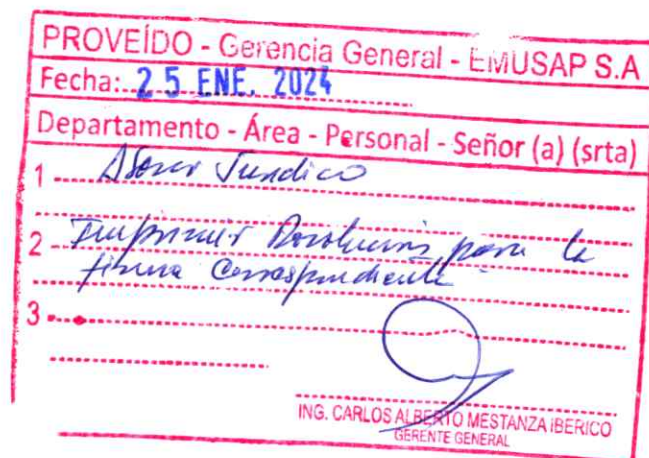 PROVEÍDO - Gerencia General - EMUSAP S.A
Fecha: 25 ENE. 2024
Departamento - Área - Personal - Señor (a) (srta)
1 Asesor Jurídico
2 Imprimir Resolución, para la
firma correspondiente
3
ING. CARLOS ALBERTO MESTANZA IBERICO
GERENTE GENERAL